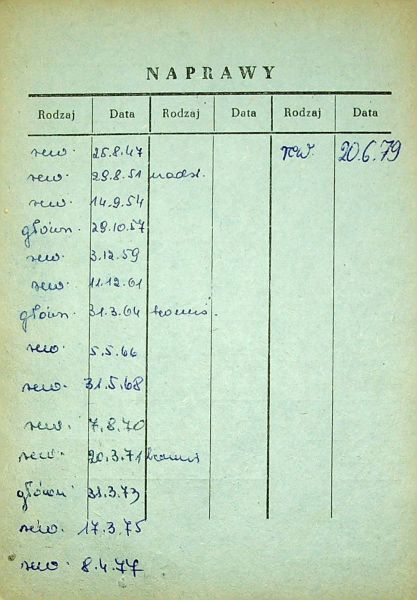 NAPRAWY
Rodzaj Data Rodzaj Data Rodzaj Data
rew. 25.8.47 rew. 20.6.79
rew. 29.8.51 nadzw.
rew. 14.9.54
główn. 29.10.57
rew. 3.12.59
rew. 11.12.61
główn. 31.3.64
rew. 5.5.66
rew. 31.5.68
rew. 7.8.70
rew. 20.3.71
główn. 31.3.73
rew. 17.3.75
rew. 8.4.77